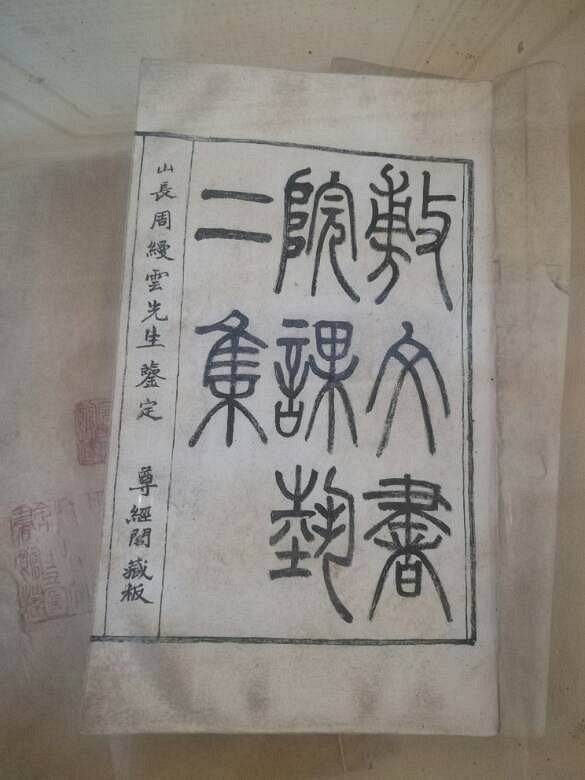 敷文書
院課藝
二集
山長周縵雲先生鑒定 尊經閣藏板